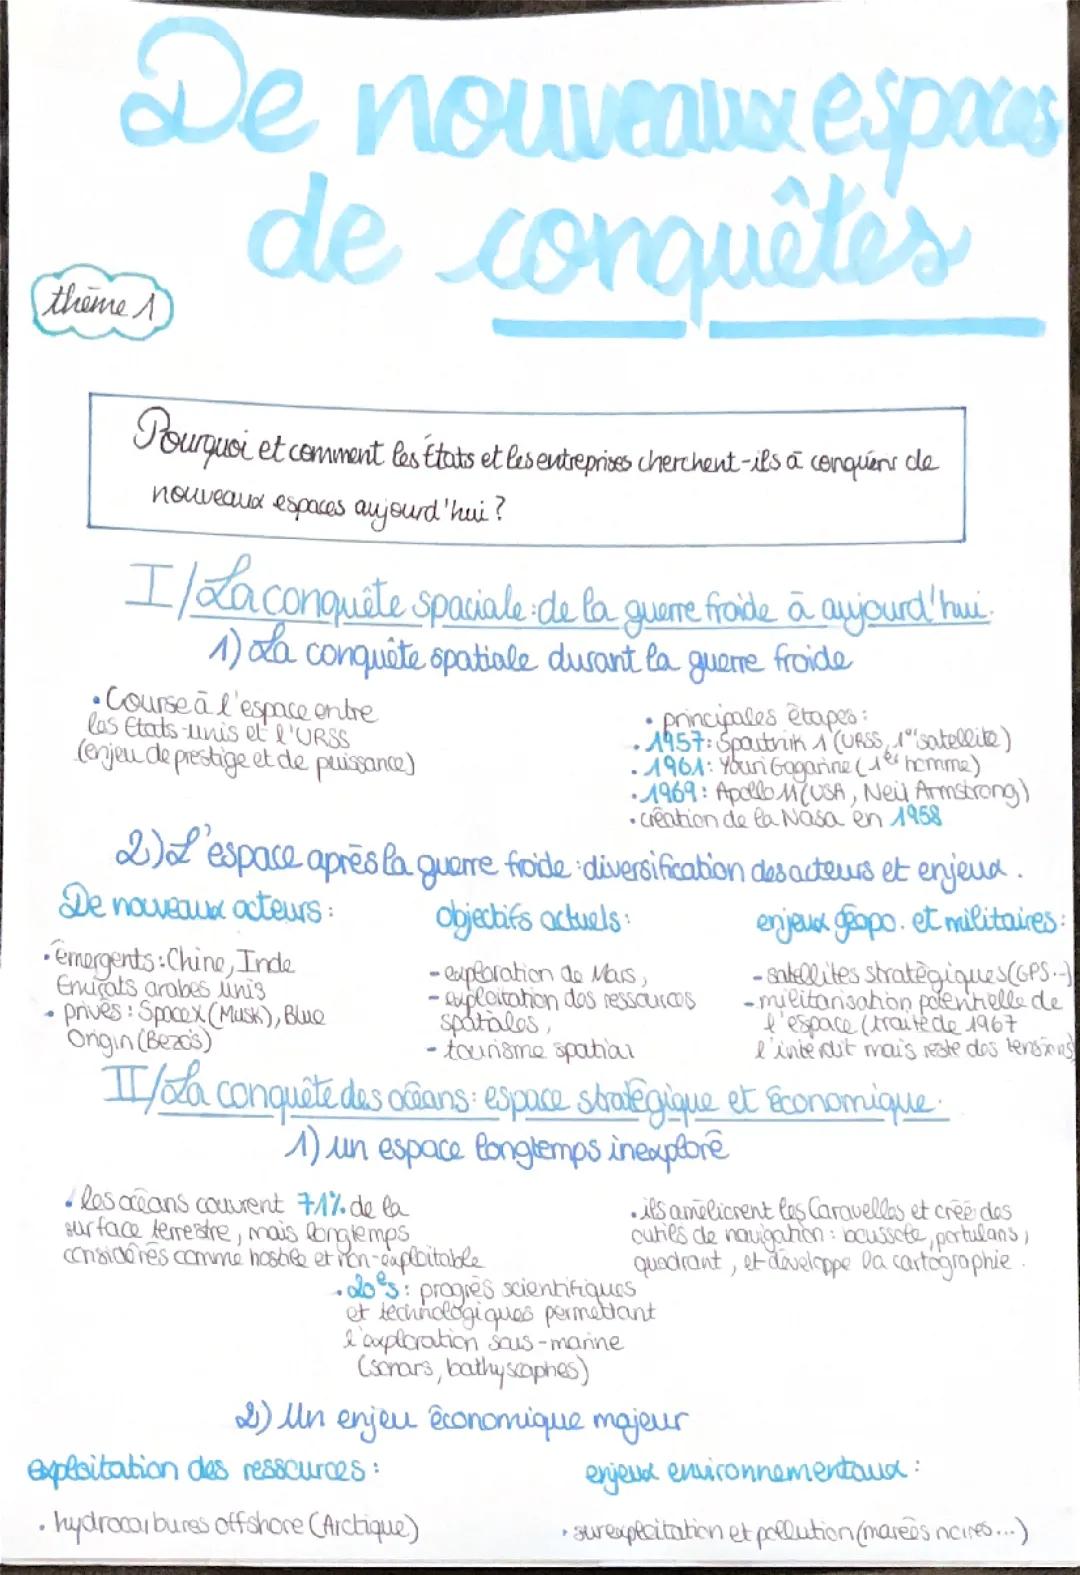 De nouveaux espaces
de conquêtes
thème 1
Pourquoi et comment les États et les entreprises cherchent-ils à conquérir de
nouveaux espaces aujourd'hui ?
I/ La conquête spaciale : de la guerre froide à aujourd'hui.
1) La conquête spatiale durant la guerre froide
• Course à l'espace entre
les Etats-unis et l'URSS
(enjeu de prestige et de puissance)
• principales étapes :
• 1957 : Spoutnik 1 (URSS, 1er satellite)
• 1961 : Youri Gagarine (1er homme)
• 1969 : Apollo 11 (USA, Neil Armstrong)
• création de la Nasa en 1958
2) L'espace après la guerre froide : diversification des acteurs et enjeux.
De nouveaux acteurs :
• émergents : Chine, Inde
Emirats arabes unis
• privés : Spacex (Musk), Blue
Origin (Bezos)
objectifs actuels :
- exploration de Mars,
- exploitation des ressources
spatales,
- tourisme spatial
enjeux géopo. et militaires :
- satellites stratégiques (GPS...)
- militarisation potentielle de
l'espace (traité de 1967
l'interdit mais reste des tensions)
II/ La conquête des océans : espace stratégique et économique.
1) un espace longtemps inexploré
• les océans couvrent 71% de la
surface terrestre, mais longtemps
considérés comme hostile et non-exploitable
• ils améliorent les Caravelles et créé des
outils de navigation : boussole, portulans,
quadrant, et développe la cartographie.
• 20es : progrès scientifiques
et technologiques permettant
l'exploration sous-marine
(sonars, bathyscaphes)
2) Un enjeu économique majeur
exploitation des ressources :
• hydrocarbures offshore (Arctique)
enjeux environnementaux :
• surexploitation et pollution (marées noires...)